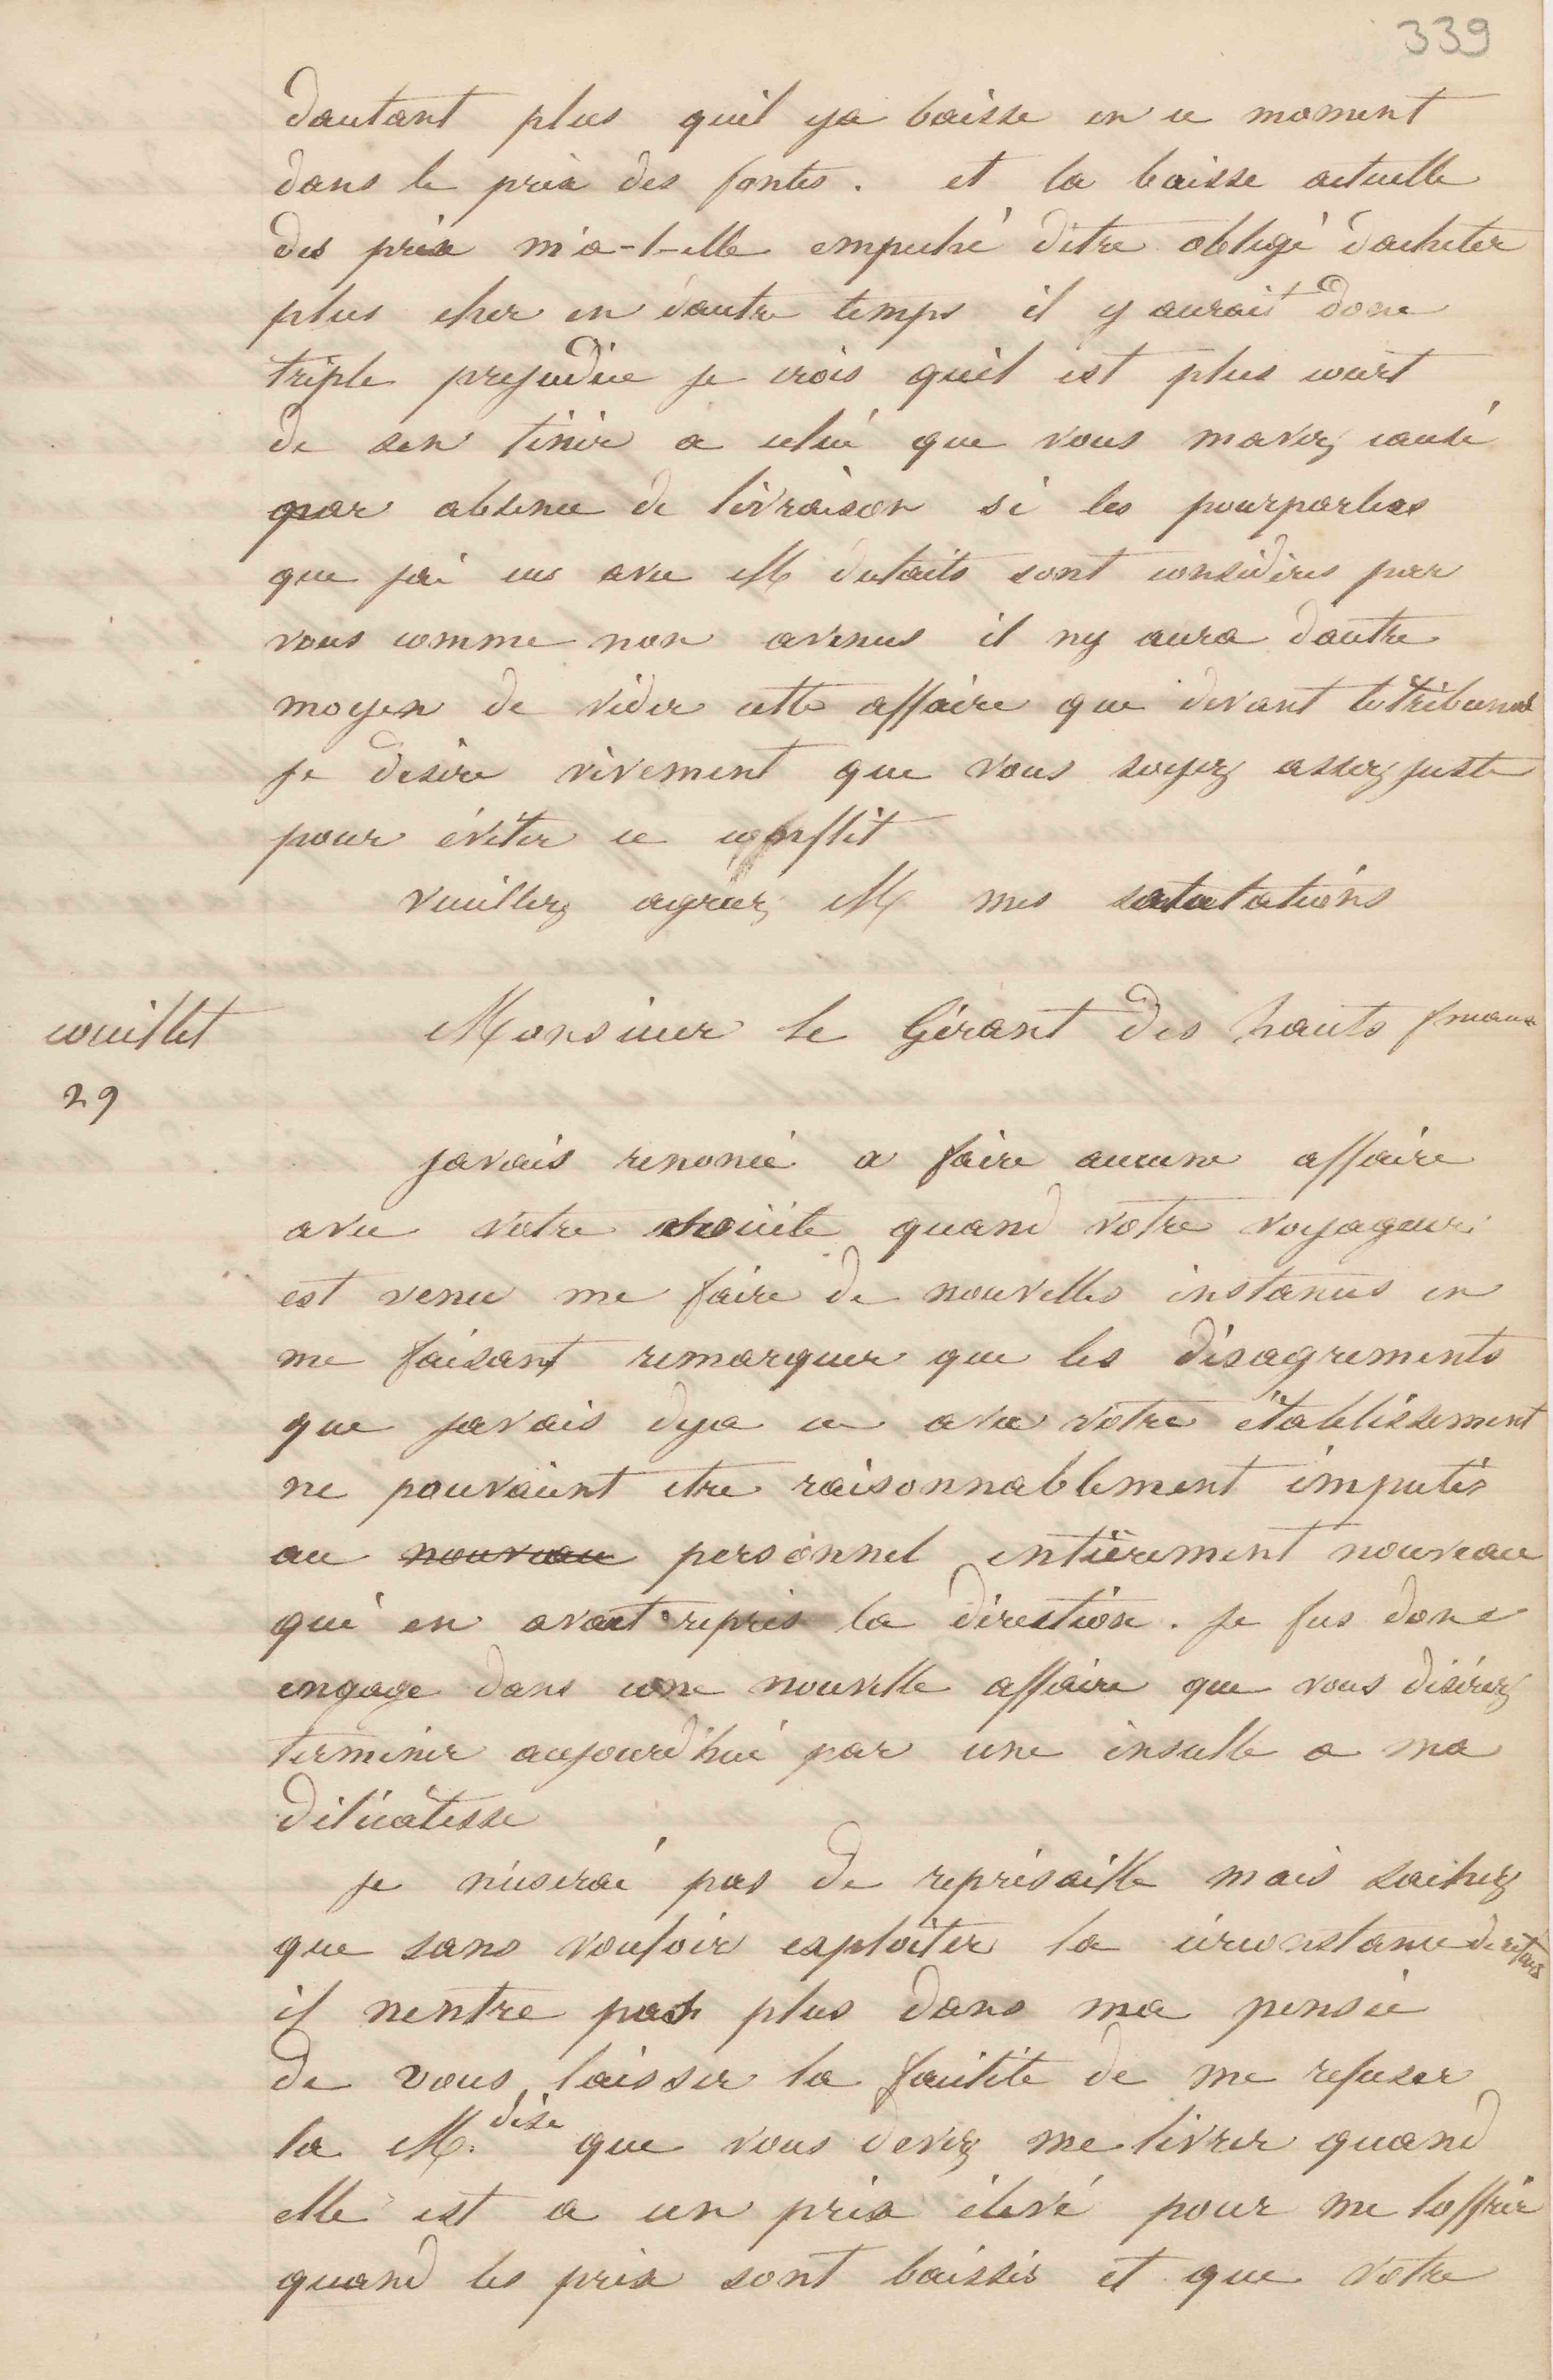 339
dautant plus quil ya baisse en ce moment
dans le prix des fontes. et la baisse actuelle
des prix m'a-t-elle empeché d'etre obligé d'acheter
plus cher en d'autre temps il y aurait donc
triple prejudice je crois quil est plus court
de sen tenir a celui que vous mavez causé
par absence de livraison si les pourparlers
que jai eus avec M dutaits sont considérés par
vous comme non avenus il ny aura dautre
moyen de vider cette affaire que devant le tribunal
je desire vivement que vous soyez assez juste
pour éviter ce conflit
veuillez agréez M mes salutations
couillet
29
Monsieur le Gérant des hauts frneaux
javais renoncé a faire aucune affaire
avec votre société quand votre voyageur
est venu me faire de nouvelles instances en
me faisant remarquer que les désagrements
que javais deja eu avec votre établissement
ne pouvaient etre raisonnablement imputés
au nouveau personnel entièrement nouveau
qui en avait repris la direction. je fus donc
engage dans une nouvelle affaire que vous désirez
terminer aujourd'hui par une insulte a ma
délicatesse
je n'userai pas de represaille mais sachez
que sans vouloir exploiter la circonstance de retard
il nentre pas plus dans ma pensée
de vous laisser la facilité de me refuser
la M.dise que vous devez me livrer quand
elle est a un prix élevé pour me loffrir
quand les prix sont baissés et que votre